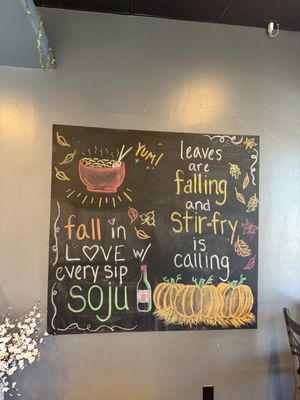 YUM!
fall in
LOVE w/
every sip
SOJU
leaves
are
falling
and
Stir-fry
is
calling